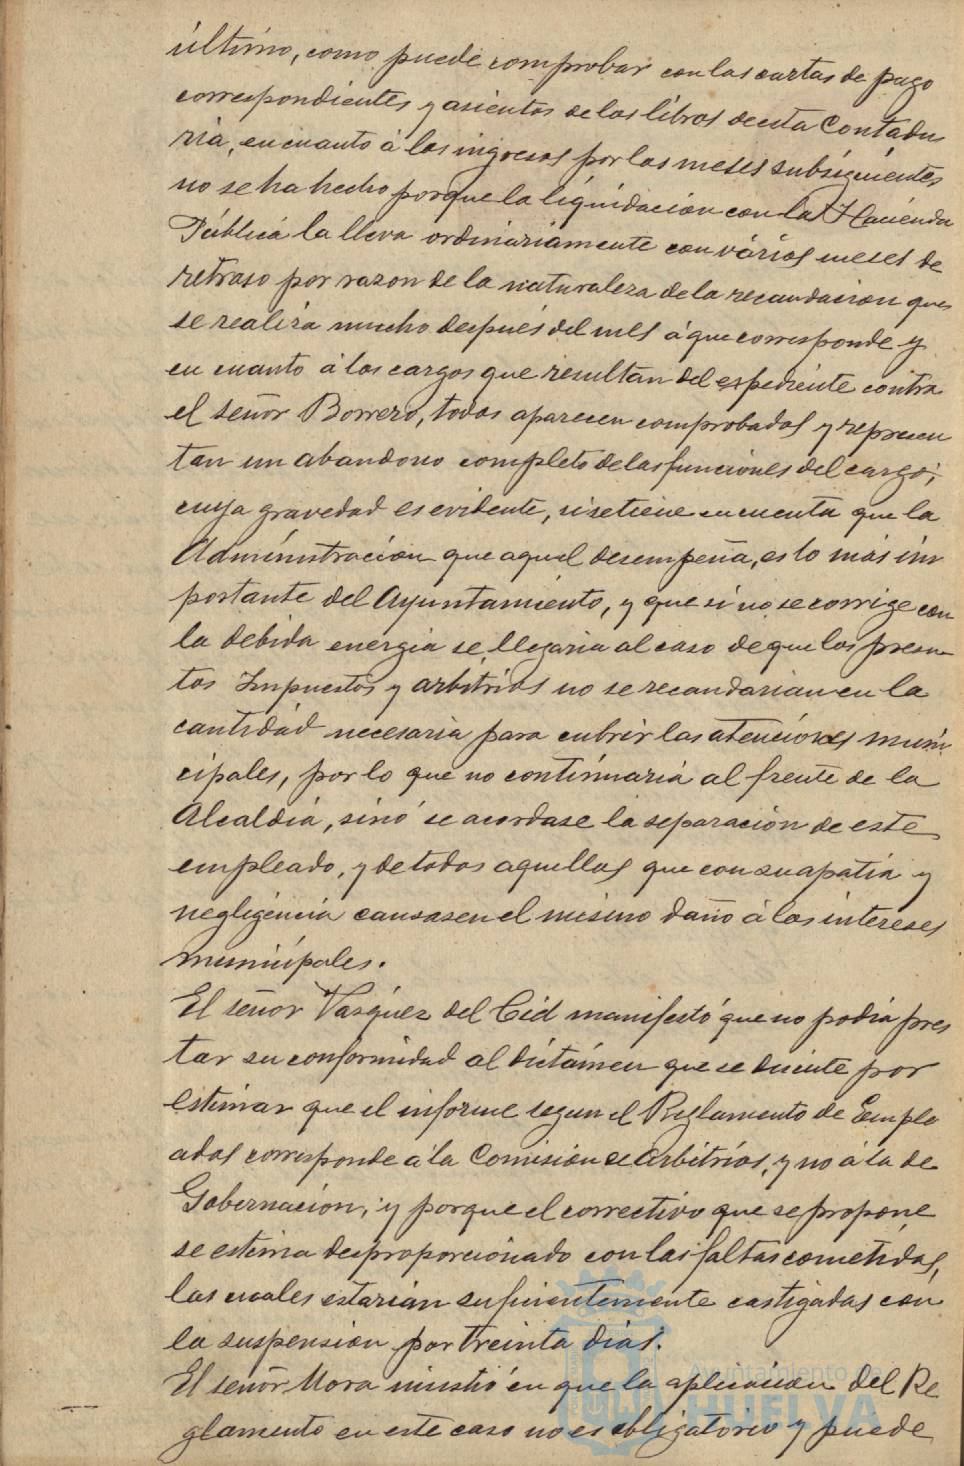 último, como puede comprobar con las cartas de pago
correspondientes y asientos de los libros de esta Contadu
ria, en cuanto á los ingresos por los meses subsiguientes
no se ha hecho porque la liquidación con la Hacienda
Pública la lleva ordinariamente con vários meses de
retraso por razon de la naturaleza de la recaudacion que
se realiza mucho despues del mes á que corresponde y
en cuanto á los cargos que resultan del espediente contra
el señor Borrero, todos aparecen comprobados y represen
tan un abandono completo de las funciones del cargo,
cuya gravedad es evidente, si se tiene en cuenta que la
Administracion que aquel desempeña, es lo más im
portante del Ayuntamiento, y que si no se corrige con
la debida energia se llegaria al caso de que los presu
tos Impuestos y arbitrios no se recaudarian en la
cantidad necesaria para cubrir las atenciones muni
cipales, por lo que no continuaria al frente de la
Alcaldia, sinó se acordase la separación de este
empleado, y de todos aquellos que con su apatia y
negligencia causasen el mismo daño á los intereses
municipales.
El señor Vazquez del Cid manifestó que no podia pres
tar su conformidad al dictámen que se discute por
estimar que el informe segun el Reglamento de Emple
ados corresponde á la Comision de Arbitrios, y no á la de
Gobernacion, y porque el correctivo que se propone
se estima desproporcionado con las faltas cometidas,
las cuales estarian suficientemente castigadas con
la suspension por treinta dias.
El señor Mora insistió en que la aplicacion del Re
glamento en este caso no es obligatorio y puede
Ayuntamiento de
HUELVA